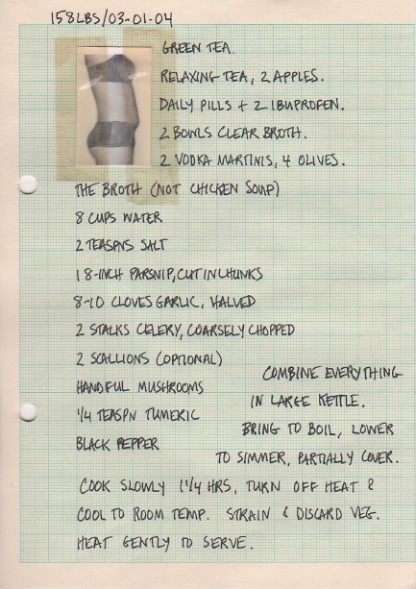 158LBS/03-01-04
GREEN TEA.
RELAXING TEA, 2 APPLES.
DAILY PILLS + 2 IBUPROFEN.
2 BOWLS CLEAR BROTH.
2 VODKA MARTINIS, 4 OLIVES.
THE BROTH (NOT CHICKEN SOUP)
8 CUPS WATER
2 TEASPNS SALT
1 8-INCH PARSNIP, CUT IN CHUNKS
8-10 CLOVES GARLIC, HALVED
2 STALKS CELERY, COARSELY CHOPPED
2 SCALLIONS (OPTIONAL)
HANDFUL MUSHROOMS
1/4 TEASPN TUMERIC
BLACK PEPPER
COMBINE EVERYTHING
IN LARGE KETTLE.
BRING TO BOIL, LOWER
TO SIMMER, PARTIALLY COVER.
COOK SLOWLY 1 1/4 HRS, TURN OFF HEAT &
COOL TO ROOM TEMP. STRAIN & DISCARD VEG.
HEAT GENTLY TO SERVE.